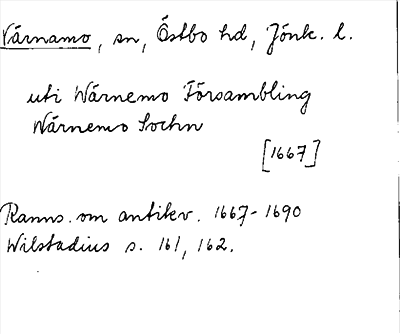 Värnamo, sn, Östbo hd, Jönk. l.
uti Wärnemo Försambling
Wärnemo Sochn
[1667]
Ranns. om antikv. 1667-1690
Wilstadius s. 161, 162.